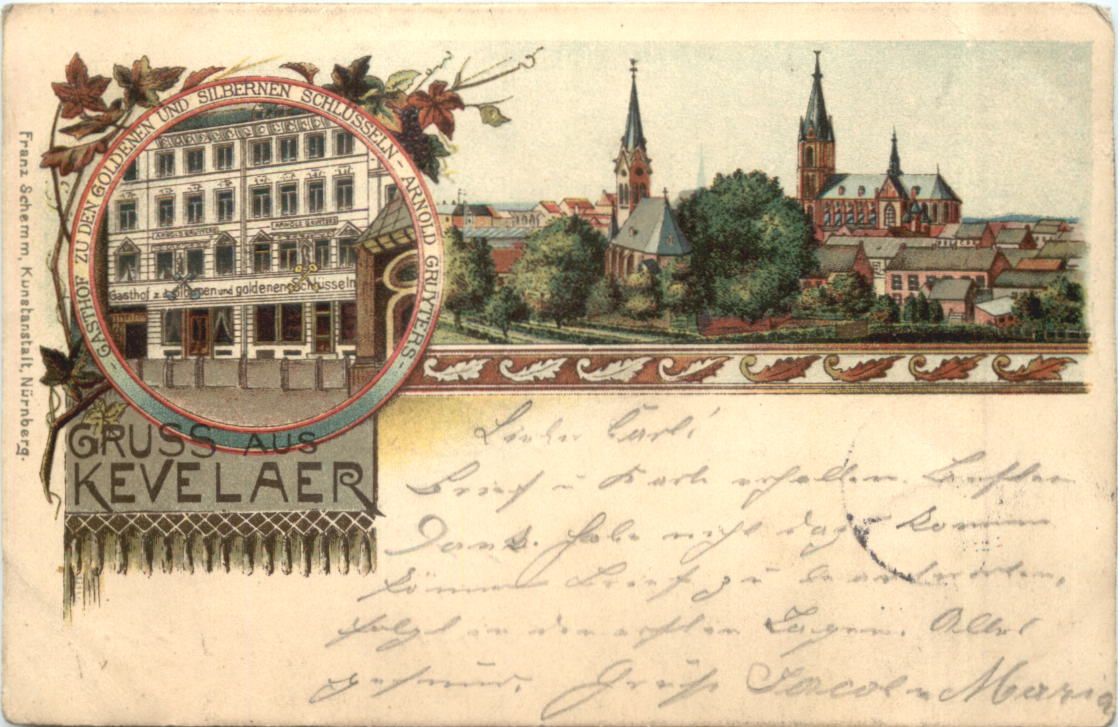 GASTHOF ZU DEN GOLDENEN UND SILBERNEN SCHLÜSSELN - ARNOLD GRUYTERS -
ARNOLD GRUYTERS
Gasthof z. d. silbernen und goldenen Schlüsseln
GRUSS AUS
KEVELAER
Franz Schemm, Kunstanstalt, Nürnberg.
Lieber Carl!
Brief u Karte erhalten. Besten
Dank. Habe nicht dazu kommen
können Brief zu beantworten,
folgt in den ersten Tagen. Alles
gesund. Grüße Jacob u Maria